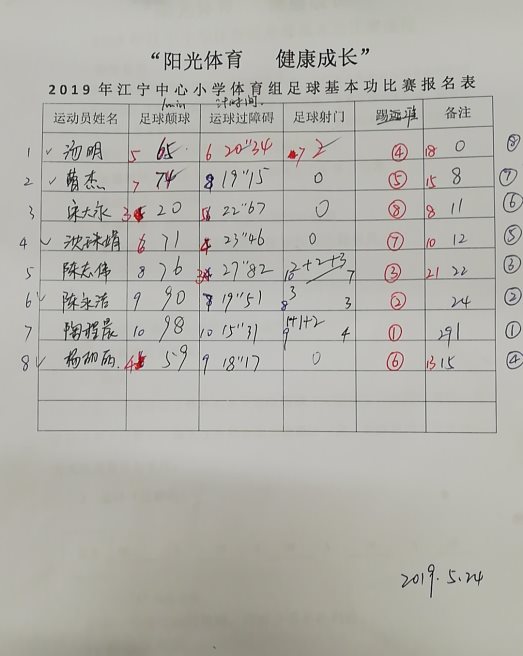 “阳光体育 健康成长”
2019年江宁中心小学体育组足球基本功比赛报名表
1min 计时间.
运动员姓名 足球颠球 运球过障碍 足球射门 踢远准 备注
1 汤明 5 65 6 20"34 7 2 ④ 18 0 ⑧
2 曹杰 7 74 8 19"15 0 ⑤ 15 8 ⑦
3 大永 3 20 5 22"67 0 ⑧ 8 11 ⑥
4 沈 娟 6 71 4 23"46 0 ⑦ 10 12 ⑤
5 陈志伟 8 76 3 27"82 10 2+2+3 7 ③ 21 22 ③
6 陈永浩 9 90 19"51 8 3 3 ② 24 ②
7 陶程晨 10 98 10 15"31 9 1+1+2 4 ① 29 ①
8 杨丽丽 4 59 9 18"17 0 ⑥ 13 15 ④
2019.5.24